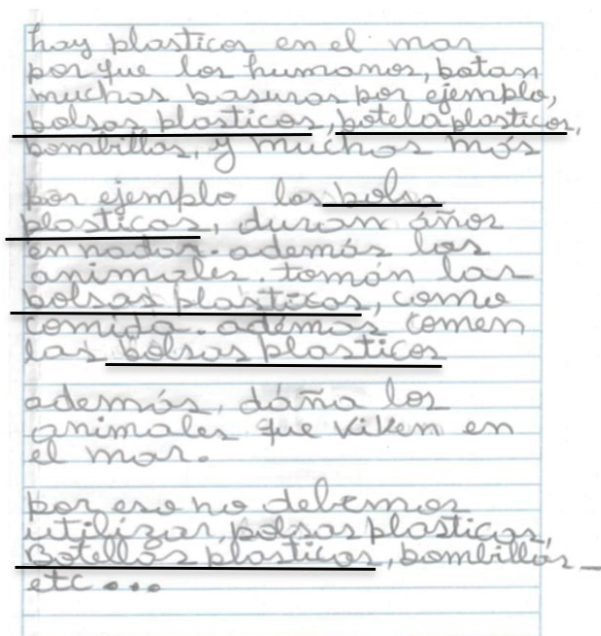 hay plasticos en el mar
por que los humanos, botan
muchas basuras por ejemplo,
bolsas plasticos, botela plasticos,
bombillas, y muchos más
por ejemplo las bolsa
plasticas, duran años
en nadar. además los
animales. tomán las
bolsas plasticas, como
comida. además comen
las bolsas plasticos
además, dáña los
animales que viven en
el mar.
por eso no debemos
utilizar, bolsas plasticos,
Botellas plasticos, bombillas
etc...